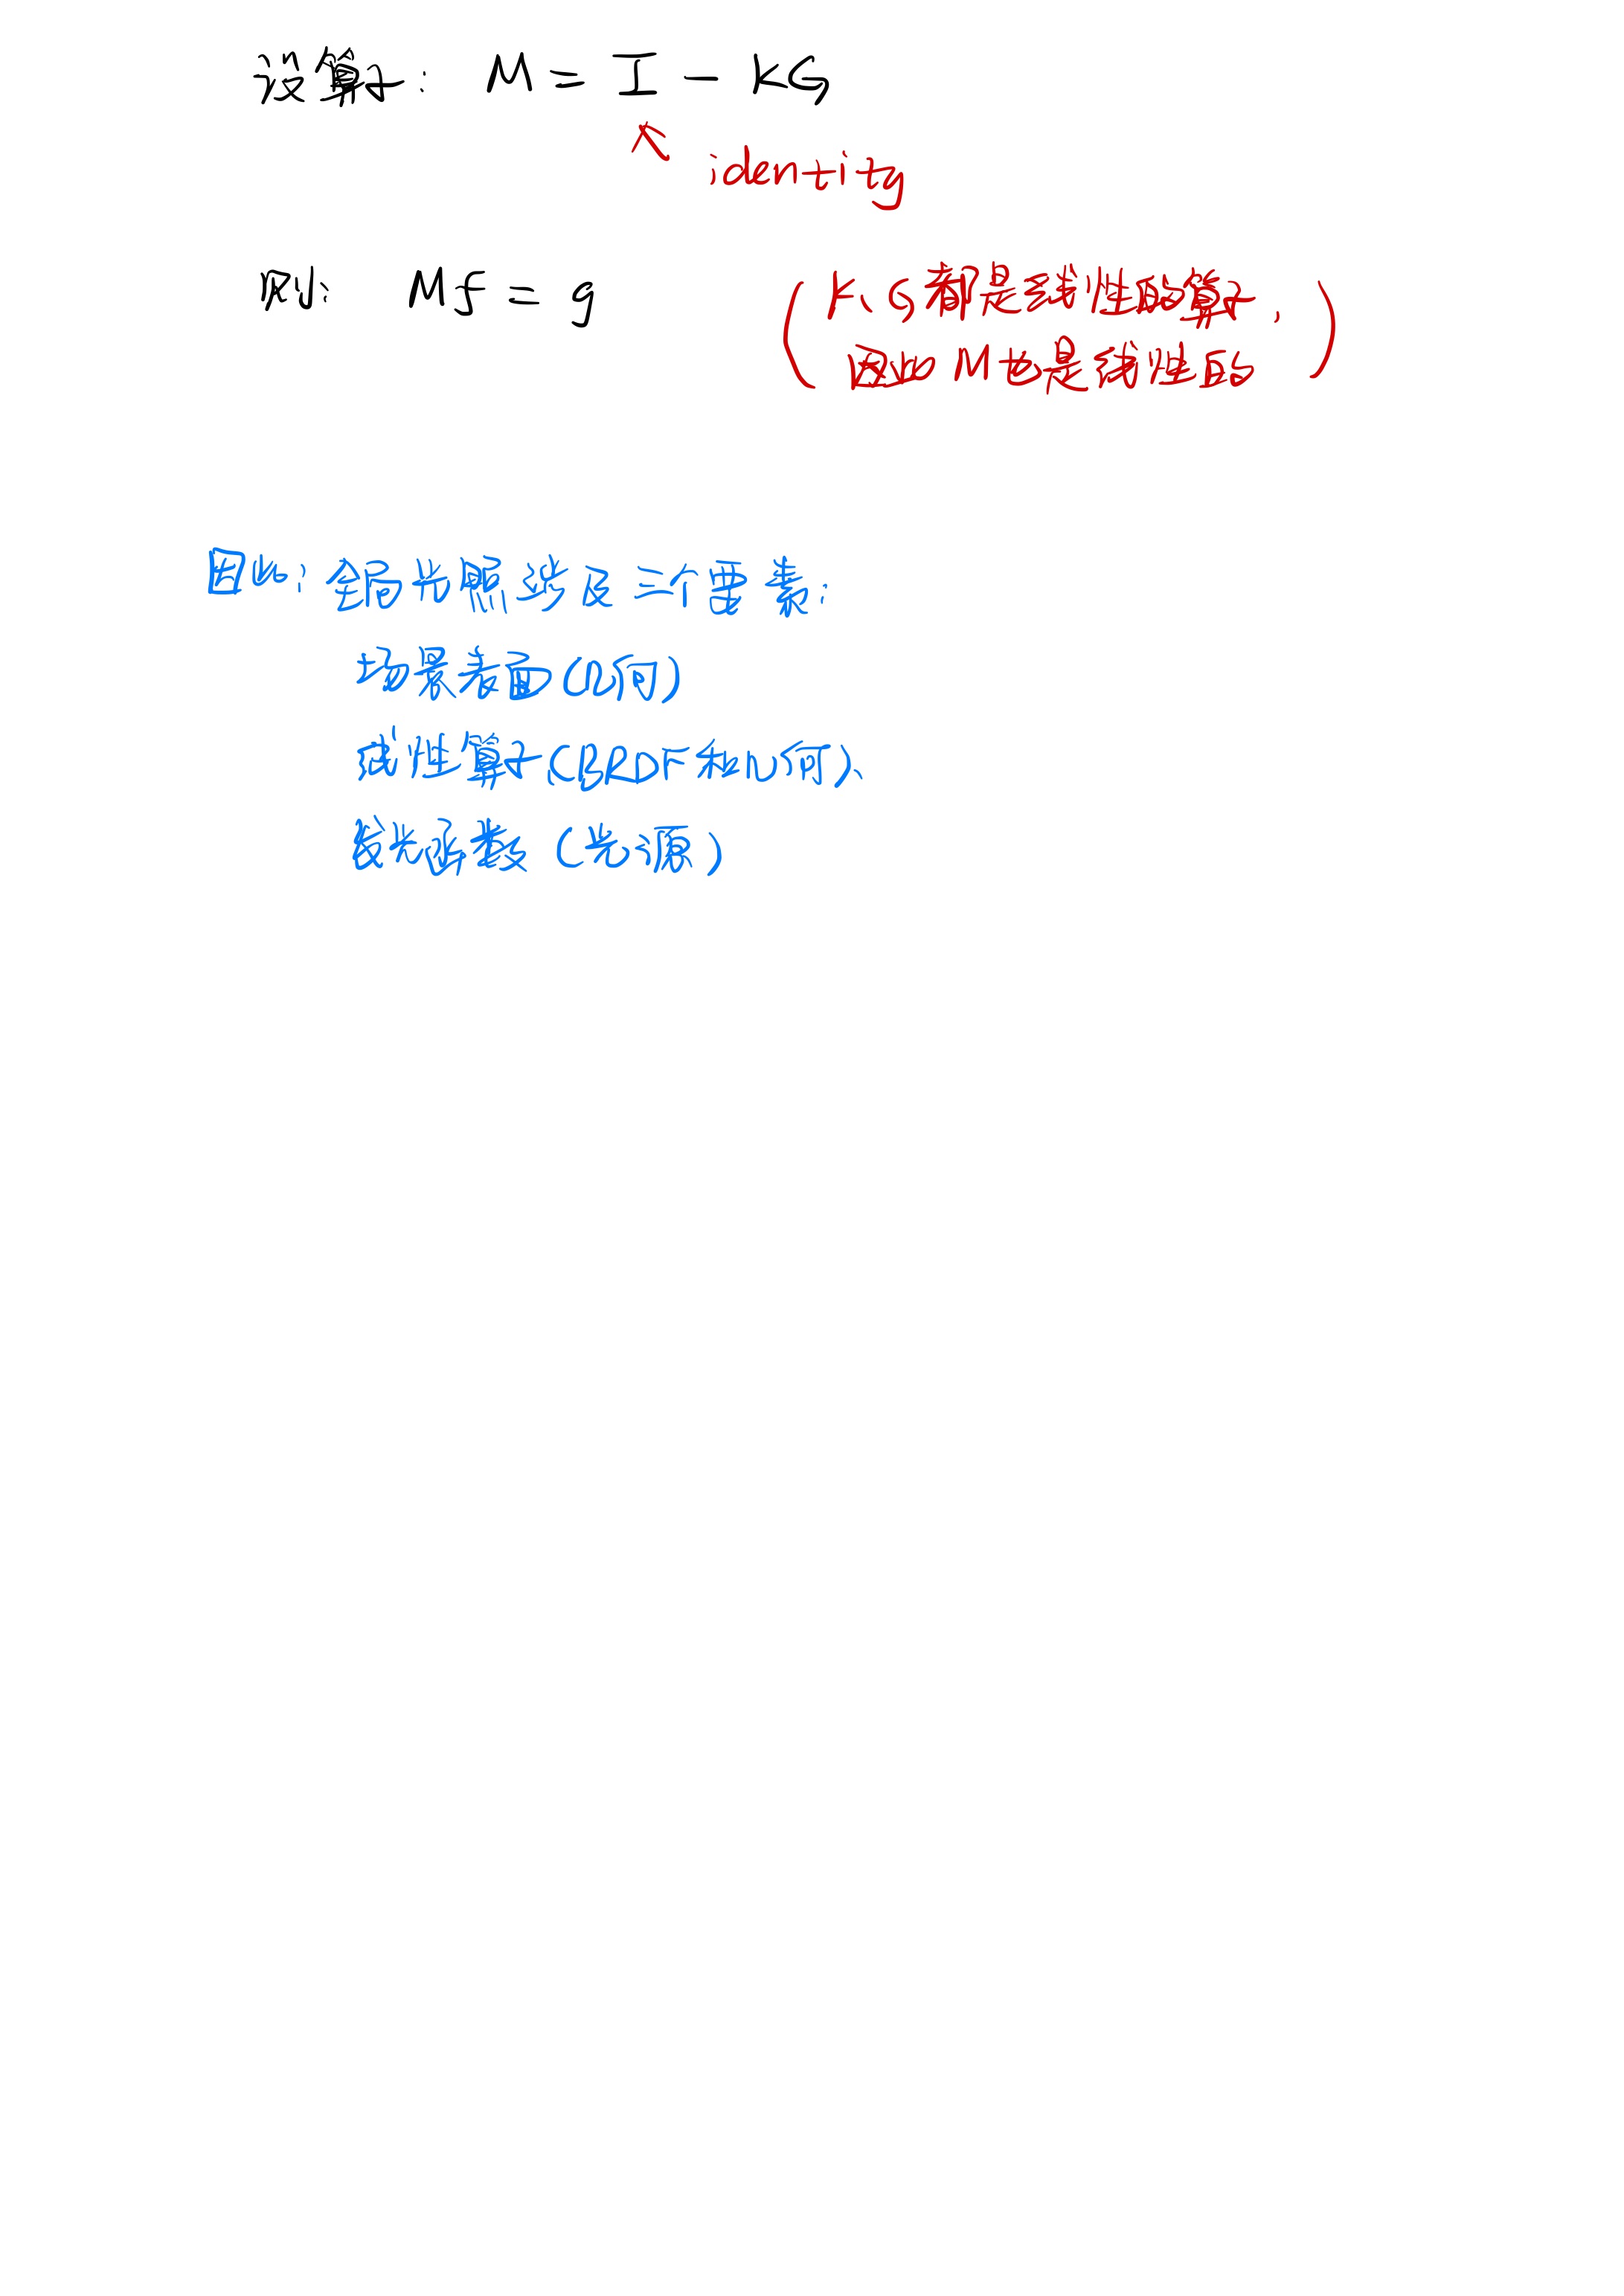 设算子: M = I - KG
identity
则: Mf = g
(K、G都是线性的算子,
因此M也是线性的)
因此: 全局光照涉及三个要素:
场景表面(几何)
线性算子(BRDF和几何)、
发光函数(光源)